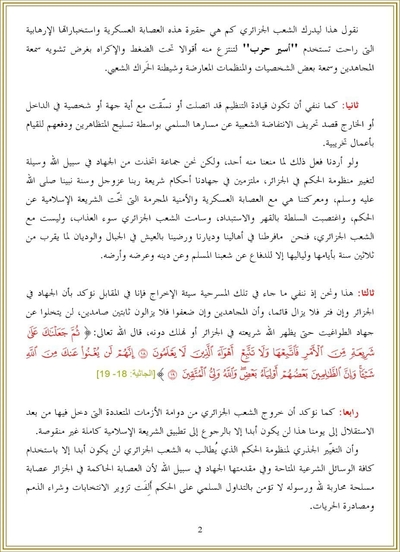 نقول هذا ليدرك الشعب الجزائري كم هي حقيرة هذه العصابة العسكرية واستخباراتها الإرهابية
التي راحت تستخدم "أسير حرب" لتنتزع منه أقوالا تحت الضغط والإكراه بغرض تشويه سمعة
المجاهدين وسمعة بعض الشخصيات والمنظمات المعارضة وشيطنة الحَراك الشعبي.
ثانيا: كما ننفي أن تكون قيادة التنظيم قد اتصلت أو نسّقت مع أية جهة أو شخصية في الداخل
أو الخارج قصد تحريف الانتفاضة الشعبية عن مسارها السلمي بواسطة تسليح المتظاهرين ودفعهم للقيام
بأعمال تخريبية.
ولو أردنا فعل ذلك لما منعنا منه أحد، ولكن نحن جماعة اتخذت من الجهاد في سبيل الله وسيلة
لتغيير منظومة الحكم في الجزائر، ملتزمين في جهادنا أحكام شريعة ربنا عزوجل وسنة نبينا صلى الله
عليه وسلم، ومعركتنا هي مع العصابة العسكرية والأمنية المجرمة التي نحّت الشريعة الإسلامية عن
الحكم، واغتصبت السلطة بالقهر والاستبداد، وسامت الشعب الجزائري سوء العذاب، وليست مع
الشعب الجزائري، فنحن مافرطنا في أهالينا وديارنا ورضينا بالعيش في الجبال والوديان لما يقرب من
ثلاثين سنة بأيامها ولياليها إلا للدفاع عن شعبنا المسلم وعن دينه وعرضه وأرضه.
ثالثا: هذا ونحن إذ ننفي ما جاء في تلك المسرحية سيئة الإخراج فإنا في المقابل نؤكد بأن الجهاد في
الجزائر وإن فتر فلا يزال قائما، وأن المجاهدين وإن ضعفوا فلا يزالون ثابتين صامدين، لن يتخلوا عن
جهاد الطواغيت حتى يظهر الله شريعته في الجزائر أو نهلك دونه، قال الله تعالى: ﴿ ثُمَّ جَعَلْنَاكَ عَلَىٰ
شَرِيعَةٍ مِنَ الْأَمْرِ فَاتَّبِعْهَا وَلَا تَتَّبِعْ أَهْوَاءَ الَّذِينَ لَا يَعْلَمُونَ ﴿١٨﴾ إِنَّهُمْ لَنْ يُغْنُوا عَنْكَ مِنَ اللَّهِ
شَيْئًا وَإِنَّ الظَّالِمِينَ بَعْضُهُمْ أَوْلِيَاءُ بَعْضٍ وَاللَّهُ وَلِيُّ الْمُتَّقِينَ ﴿١٩﴾ ﴾ [الجاثية: 18- 19]
رابعا: كما نؤكد أن خروج الشعب الجزائري من دوامة الأزمات المتعددة التي دخل فيها من بعد
الاستقلال إلى يومنا هذا لن يكون أبدا إلا بالرجوع إلى تطبيق الشريعة الإسلامية كاملة غير منقوصة.
وأن التغيّير الجذري لمنظومة الحكم الذي يُطالب به الشعب الجزائري لن يكون أبدا إلا باستخدام
كافة الوسائل الشرعية المتاحة وفي مقدمتها الجهاد في سبيل الله لأن العصابة الحاكمة في الجزائر عصابة
مسلحة محاربة لله ورسوله لا تؤمن بالتداول السلمي على الحكم أَلِفَت تزوير الانتخابات وشراء الذمم
ومصادرة الحريات.
2